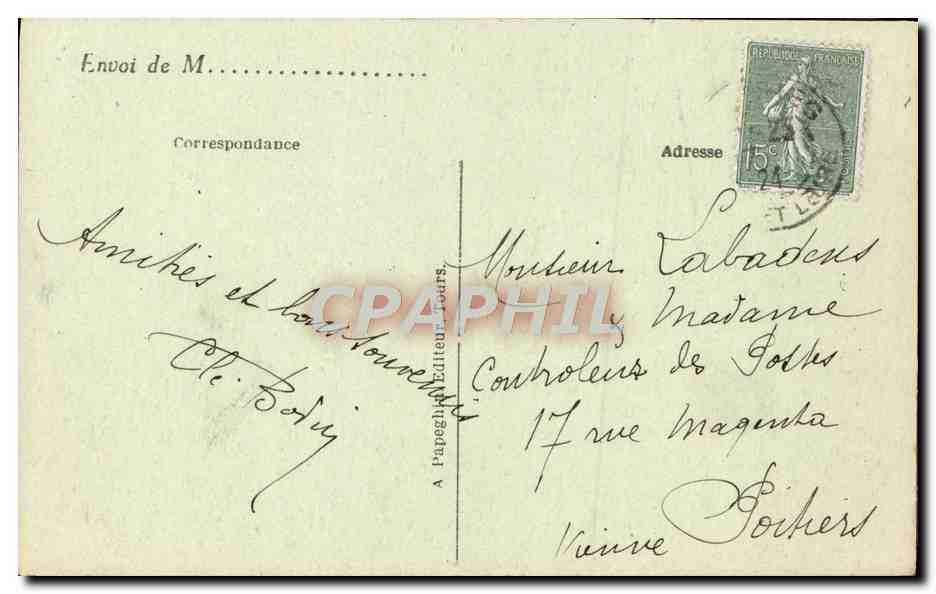 Envoi de M....................
Correspondance
Amitiés et bons souvenirs
Cl. Bodin
A Papeghin Editeur, Tours.
CPAPHIL
Adresse
REPUBLIQUE FRANÇAISE
15c
24
ET LOIRE
Monsieur Labadens
Madame
Controleur des Postes
17 rue Magenta
Poitiers
Vienne